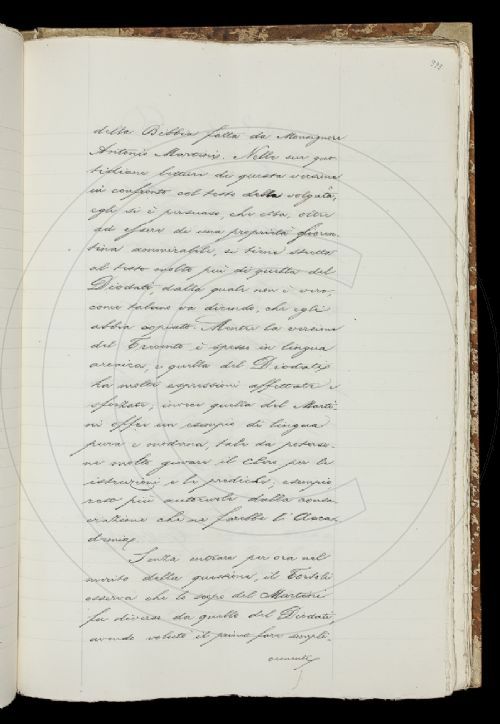 della Bibbia fatta da Monsignore
Antonio Martini. Nelle sue quo-
tidiane letture di questa versione
in confronto col testo della volgata,
egli si è persuaso, che essa, oltre
ad essere di una proprietà fioren-
tina ammirabile, si tiene stretta
al testo molto più di quella del
Diodati, dalla quale non è vero,
come taluno va dicendo, che egli
abbia copiato. Mentre la versione
del Trecento è spesso in lingua
arcaica, e quella del Diodati
ha molte espressioni affettate e
sforzate, invece quella del Marti-
ni offre un esempio di lingua
pura e moderna, tale da poterse-
ne molto giovare il Clero per le
istruzioni e le prediche; esempio
reso più autorevole dalla consa-
crazione che ne farebbe l'Acca-
demia.
Senza entrare per ora nel
merito della questione, il Tortoli
osserva che lo scopo del Martini
fu diverso da quello del Diodati,
avendo voluto il primo fare sempli-
cemente